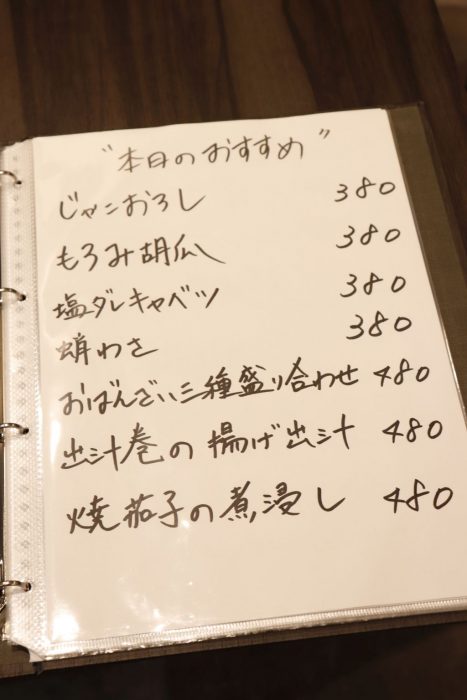 "本日のおすすめ"
じゃこおろし 380
もろみ胡瓜 380
塩ダレキャベツ 380
蛸わさ 380
おばんざい三種盛り合わせ 480
出汁巻の揚げ出汁 480
焼茄子の煮浸し 480